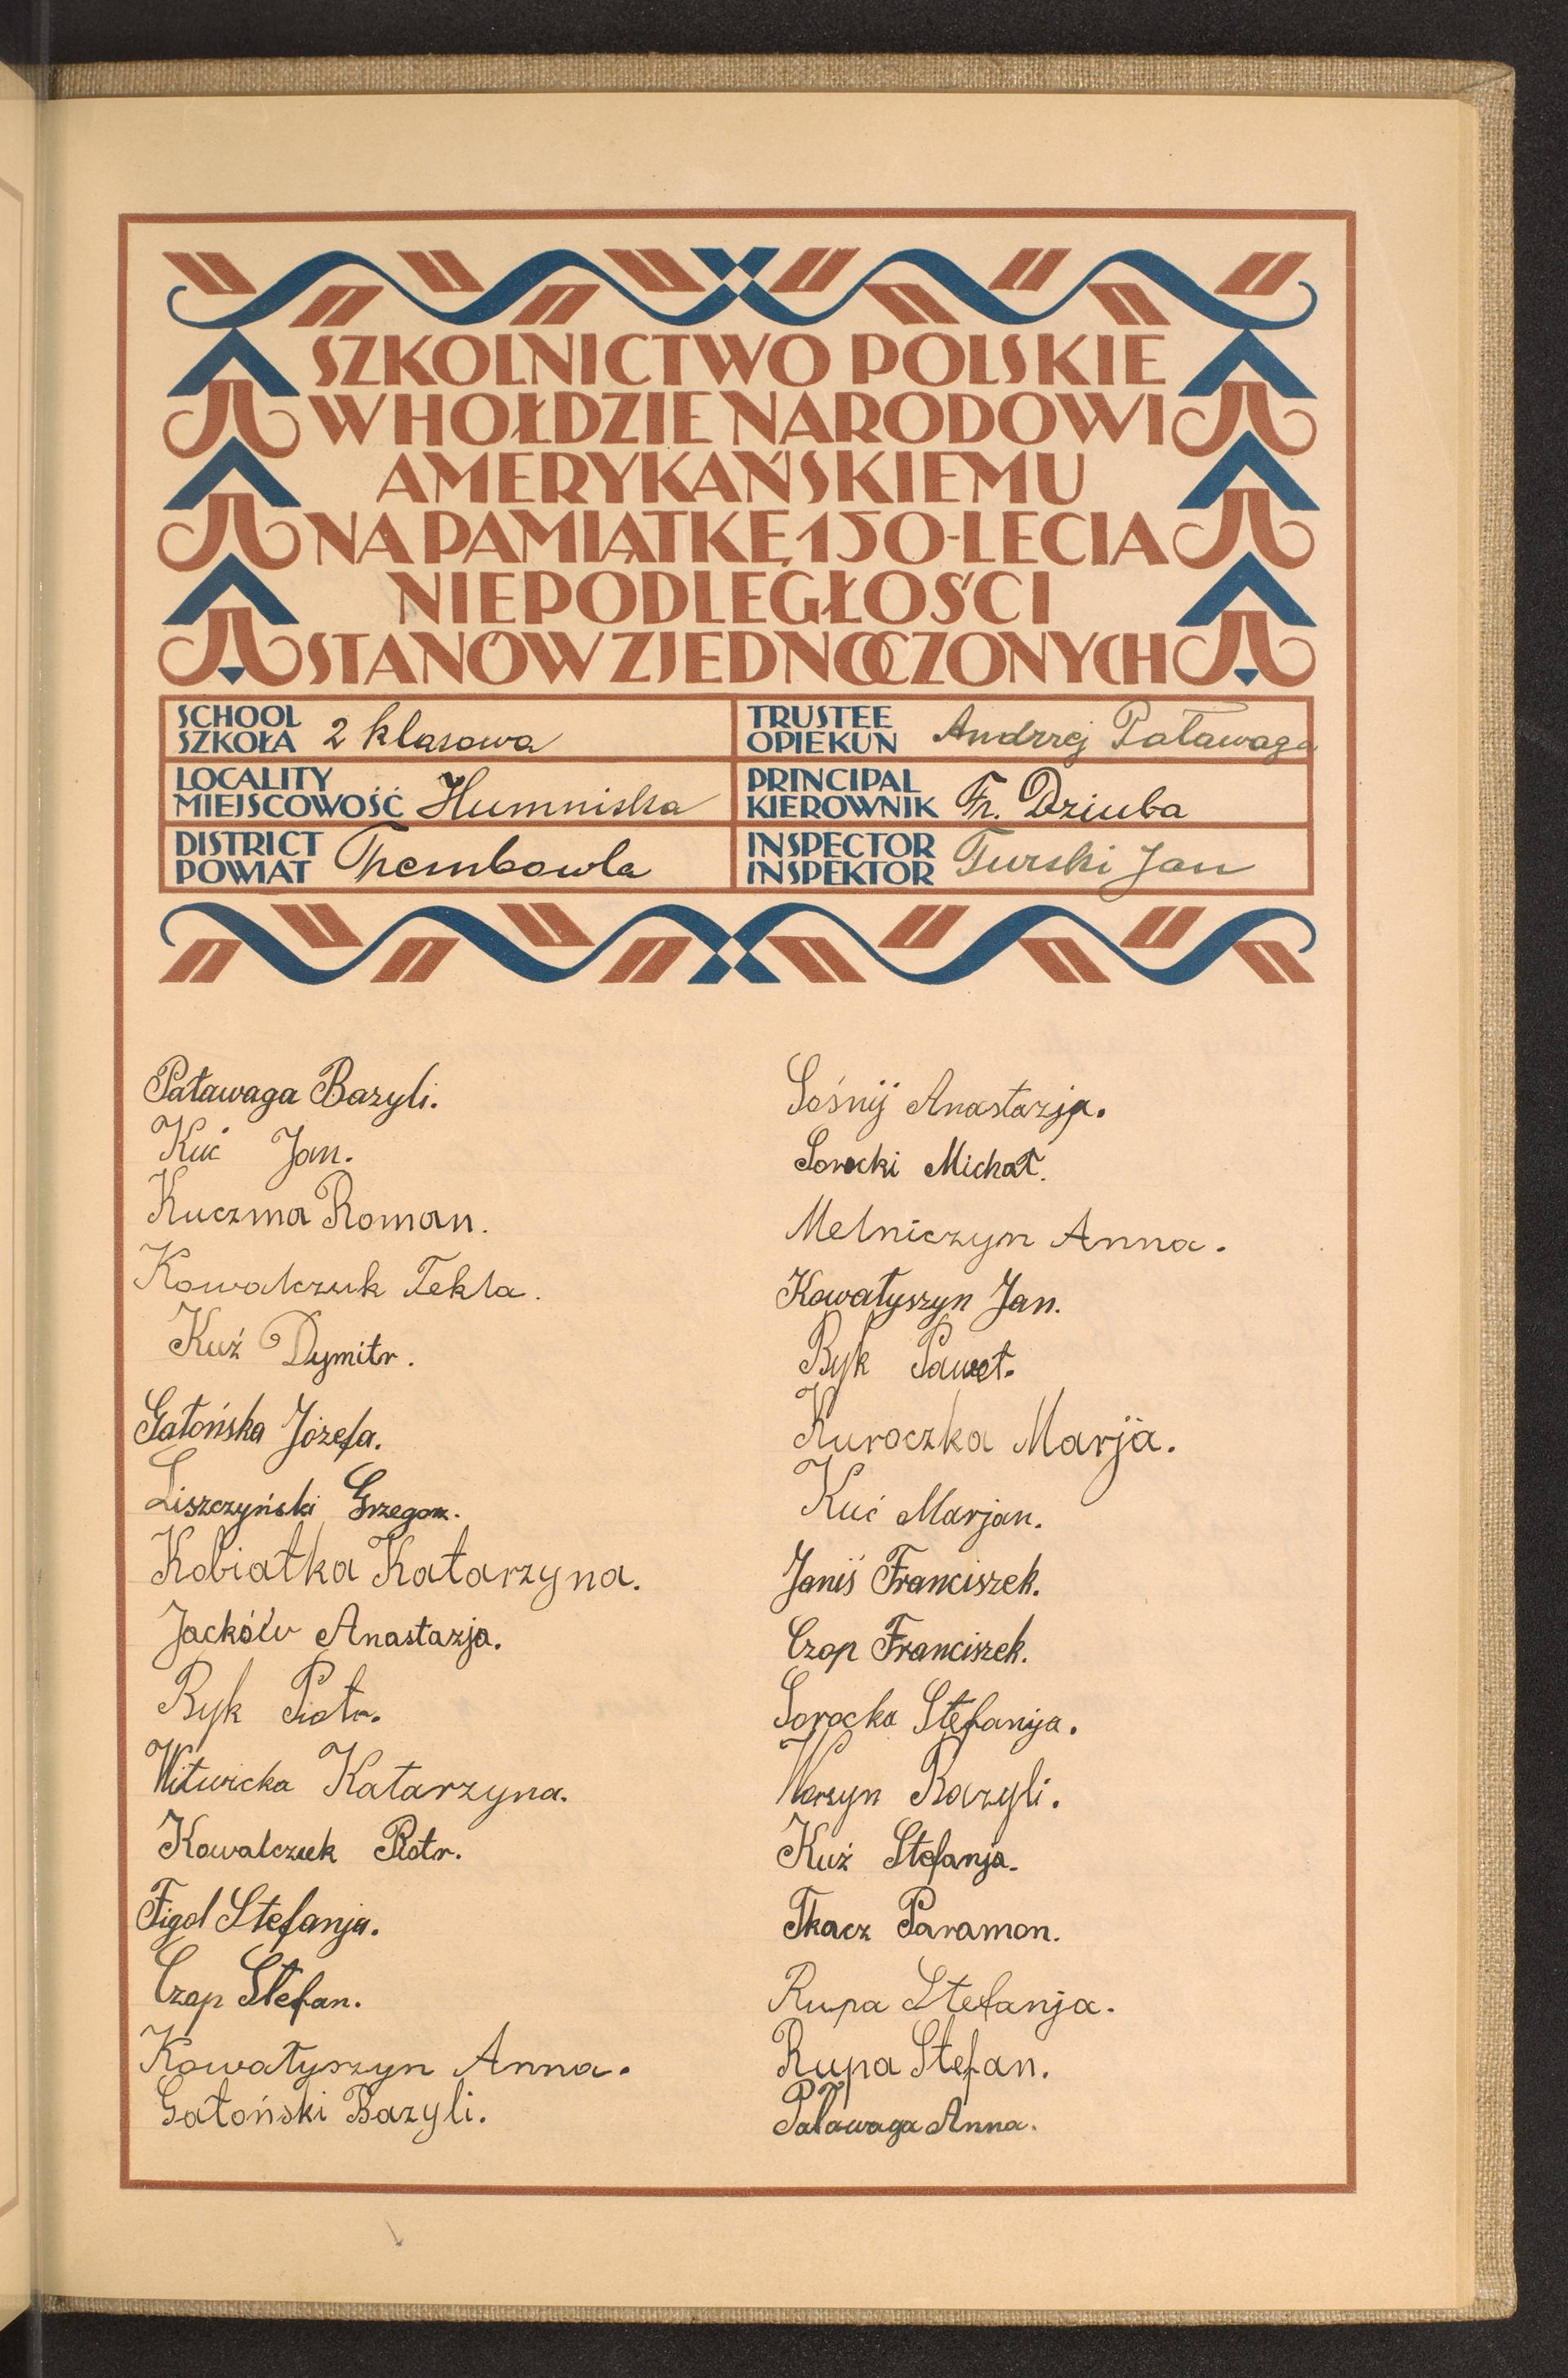 SZKOLNICTWO POLSKIE
W HOŁDZIE NARODOWI
AMERYKAŃSKIEMU
NA PAMIĄTKĘ 150-LECIA
NIEPODLEGŁOŚCI
STANÓW ZJEDNOCZONYCH
SCHOOL
SZKOŁA 2 klasowa
TRUSTEE
OPIEKUN Andrzej Paławaga
LOCALITY
MIEJSCOWOŚĆ Humniska
PRINCIPAL
KIEROWNIK Fr. Dziuba
DISTRICT
POWIAT Trembowla
INSPECTOR
INSPEKTOR Turski Jan
Paławaga Bazyli.
Kuć Jan.
Kuczma Roman.
Kowalczuk Tekla.
Kuź Dymitr.
Gałońska Józefa.
Liszczyński Grzegorz.
Kobiałka Katarzyna.
Jacków Anastazja.
Ryk Piotr.
Witwicka Katarzyna.
Kowalczuk Piotr.
Figol Stefanja.
Czop Stefan.
Kowałyszyn Anna.
Gałoński Bazyli.
Sośnij Anastazja.
Sorocki Michał.
Melniczyn Anna.
Kowałyszyn Jan.
Ryk Paweł.
Kuroczka Marja.
Kuć Marjan.
Janiś Franciszek.
Czop Franciszek.
Sorocka Stefanja.
Bazyli.
Kuź Stefanja.
Tkacz Paramon.
Rupa Stefanja.
Rupa Stefan.
Paławaga Anna.